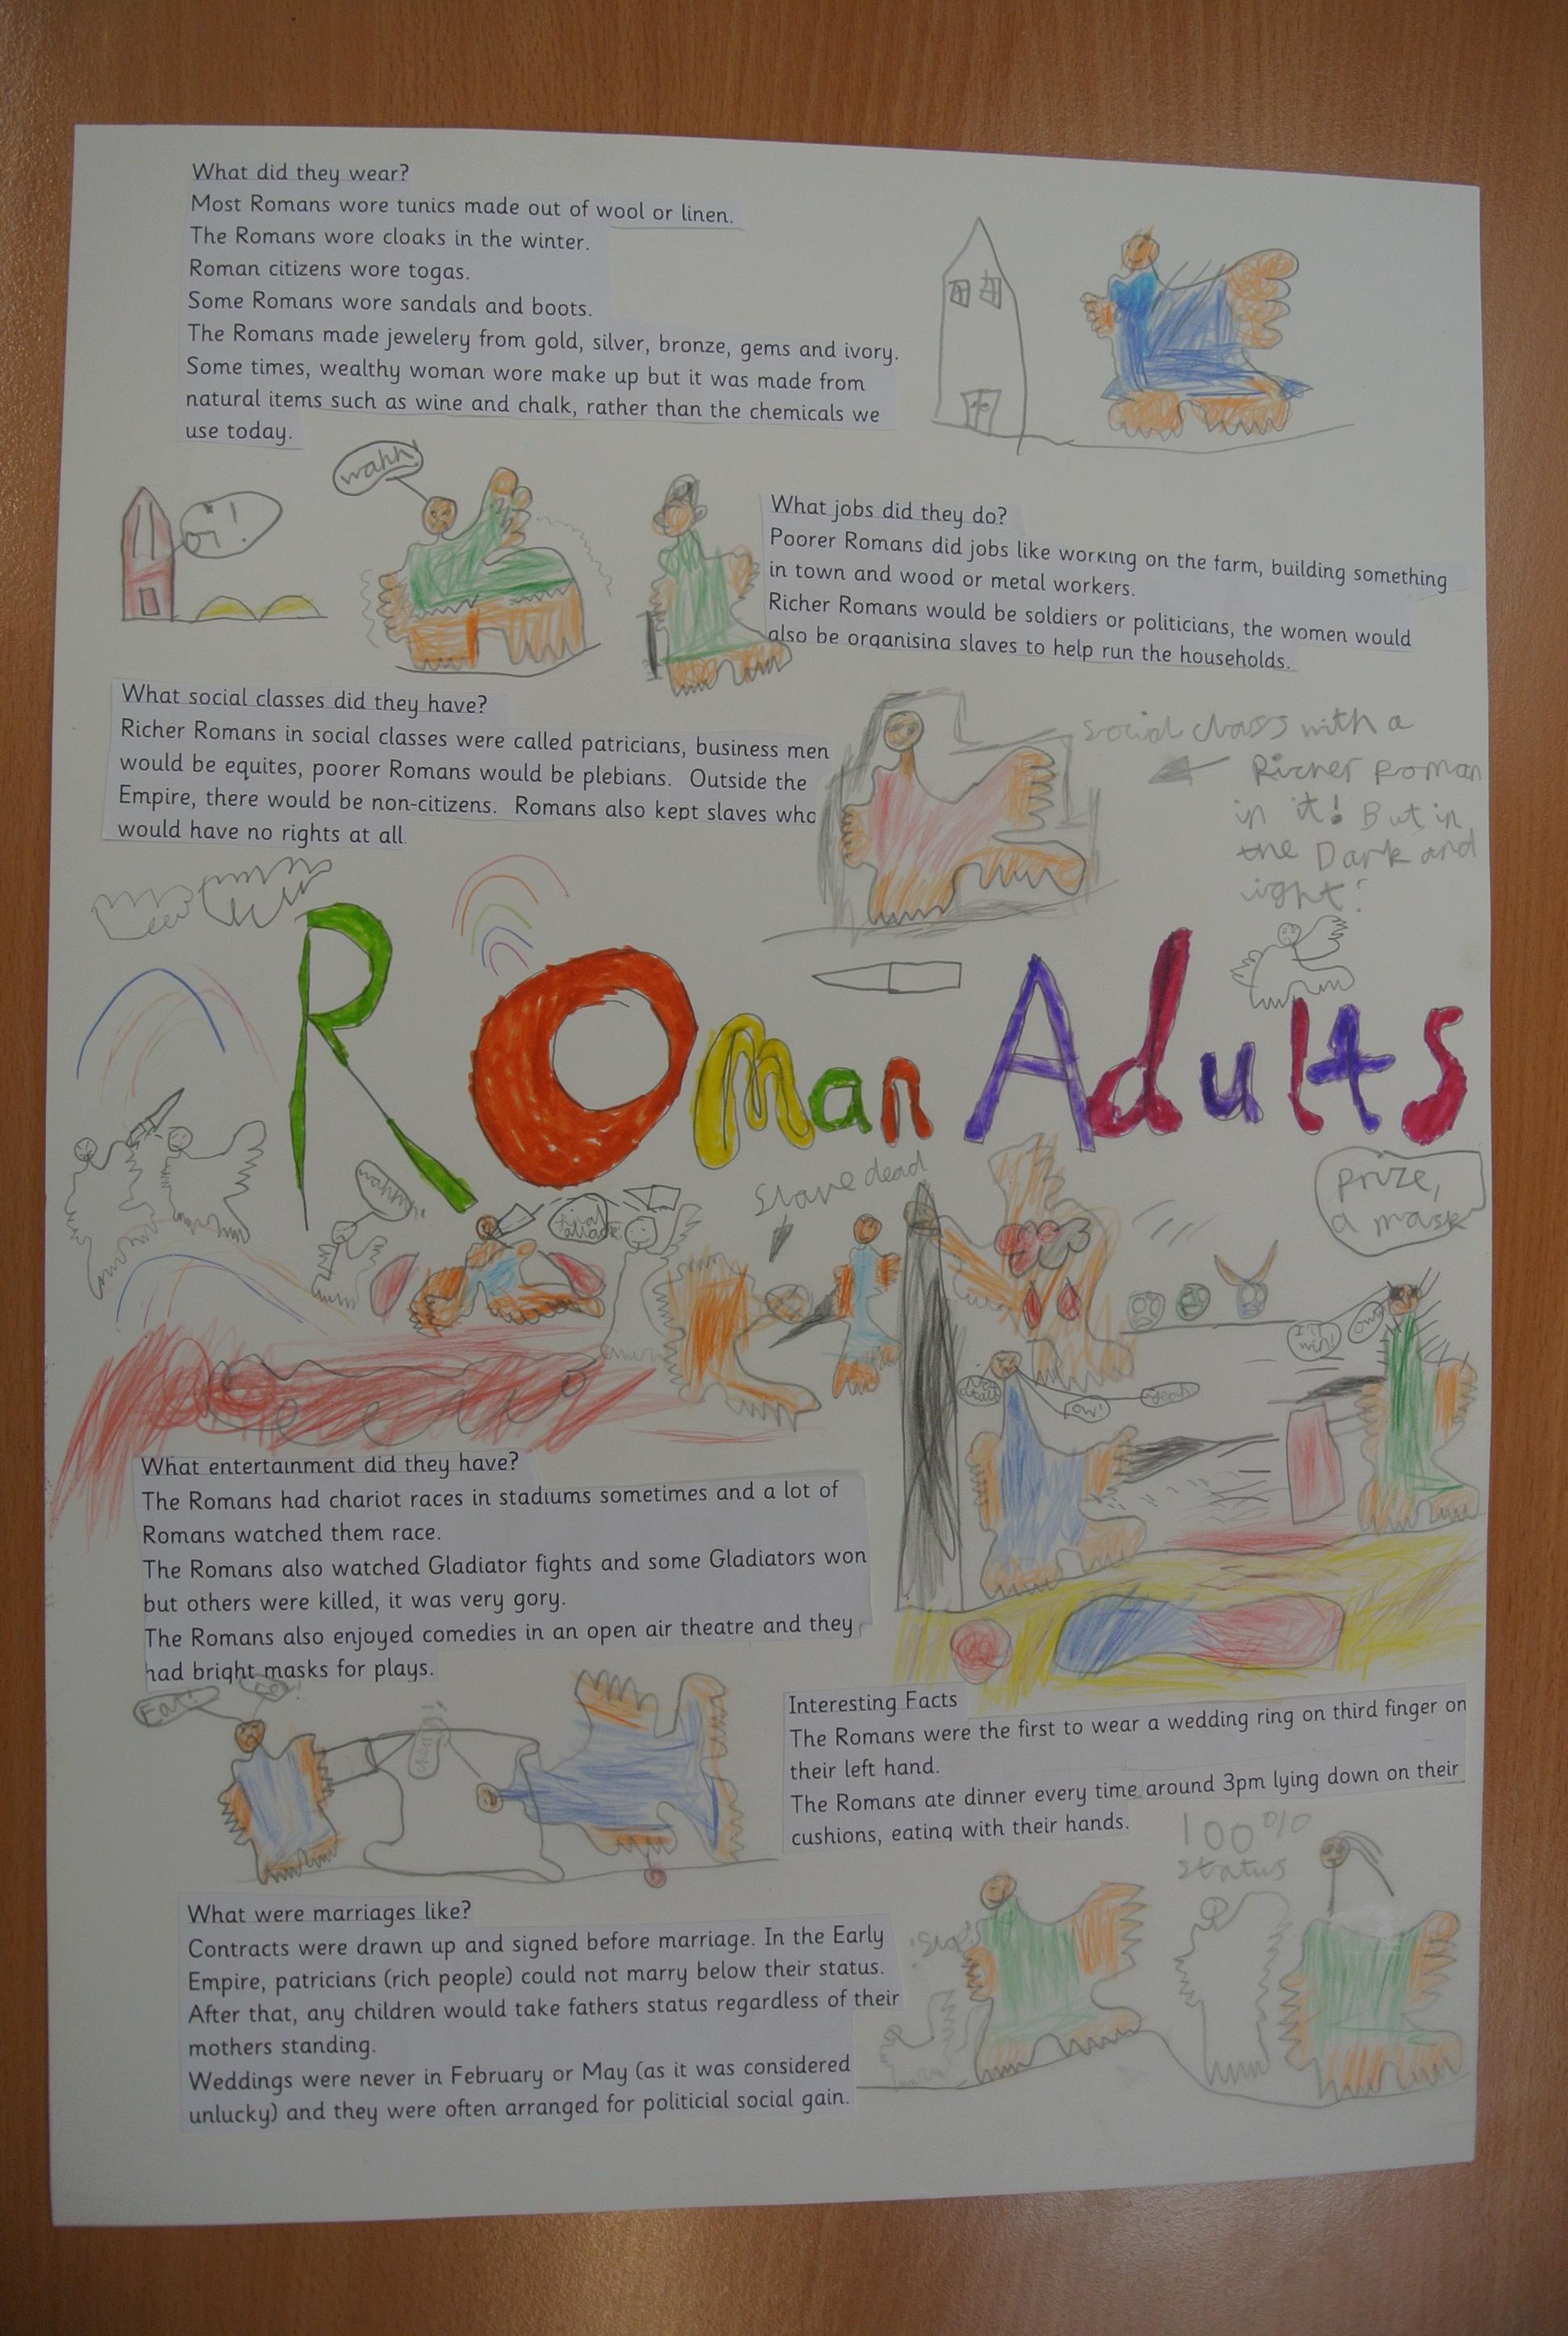 What did they wear?
Most Romans wore tunics made out of wool or linen.
The Romans wore cloaks in the winter.
Roman citizens wore togas.
Some Romans wore sandals and boots.
The Romans made jewelery from gold, silver, bronze, gems and ivory.
Some times, wealthy woman wore make up but it was made from
natural items such as wine and chalk, rather than the chemicals we
use today.
wahh
oi!
What jobs did they do?
Poorer Romans did jobs like working on the farm, building something
in town and wood or metal workers.
Richer Romans would be soldiers or politicians, the women would
also be organising slaves to help run the households.
What social classes did they have?
Richer Romans in social classes were called patricians, business men
would be equites, poorer Romans would be plebians. Outside the
Empire, there would be non-citizens. Romans also kept slaves who
would have no rights at all.
social class with a
Richer Roman
in it! But in
the Dark and
night!
ROman Adults
slave dead
prize,
a mask
ow!
yeah!
What entertainment did they have?
The Romans had chariot races in stadiums sometimes and a lot of
Romans watched them race.
The Romans also watched Gladiator fights and some Gladiators won
but others were killed, it was very gory.
The Romans also enjoyed comedies in an open air theatre and they
had bright masks for plays.
Eat!
Interesting Facts
The Romans were the first to wear a wedding ring on third finger on
their left hand.
The Romans ate dinner every time around 3pm lying down on their
cushions, eating with their hands.
100%
status
What were marriages like?
Contracts were drawn up and signed before marriage. In the Early
Empire, patricians (rich people) could not marry below their status.
After that, any children would take fathers status regardless of their
mothers standing.
Weddings were never in February or May (as it was considered
unlucky) and they were often arranged for politicial social gain.